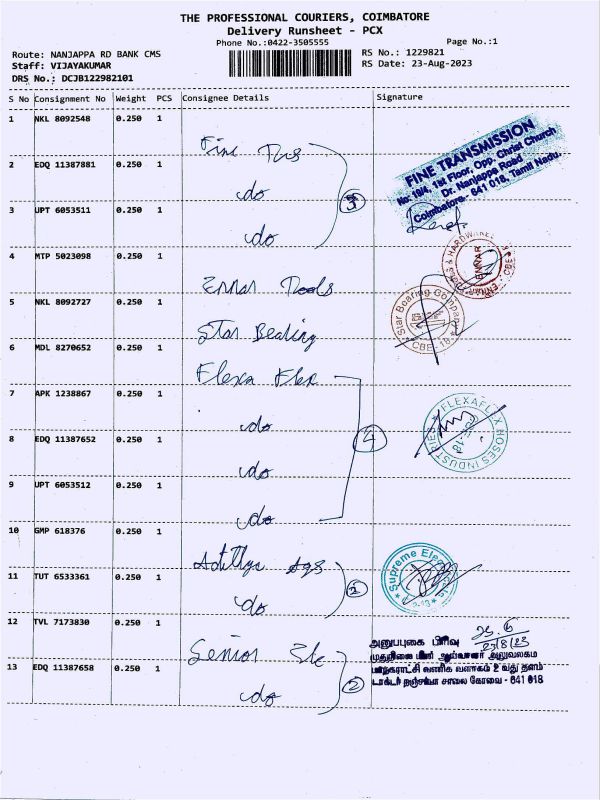 THE PROFESSIONAL COURIERS, COIMBATORE
Delivery Runsheet - PCX
Phone No.:0422-3505555
Page No.:1
Route: NANJAPPA RD BANK CMS
RS No.: 1229821
Staff: VIJAYAKUMAR
RS Date: 23-Aug-2023
DRS No.: DCJB122982101
S No Consignment No Weight PCS Consignee Details Signature
1 NKL 8092548 0.250 1 Fine Trs
FINE TRANSMISSION
No. 18/4, 1st Floor, Opp. Christ Church
Dr. Nanjappa Road
Coimbatore - 641 018, Tamil Nadu.
2 EDQ 11387881 0.250 1 do
3
3 UPT 6053511 0.250 1 do
4 MTP 5023098 0.250 1 Ennar Tools
ENNAR
5 NKL 8092727 0.250 1 Star Bearing
Star Bearing Company
CBE-18
6 MDL 8270652 0.250 1 Flexa Flex
7 APK 1238867 0.250 1 do
FLEXAFLEX HOSES INDUSTRIES
18
8 EDQ 11387652 0.250 1 do
4
9 UPT 6053512 0.250 1 do
10 GMP 618376 0.250 1 Adithya Ags
Supreme
11 TUT 6533361 0.250 1 do
2
12 TVL 7173830 0.250 1 Senior Ele
23/8/23
அனுபபுகை பிரிவு
முதுநிலை மின் ஆய்வாளர் அலுவலகம
மாநகராட்சி வணிக வளாகம் 2 வது தளம்
டாக்டர் நஞ்சப்பா சாலை கோவை - 641 018
13 EDQ 11387658 0.250 1 do
2